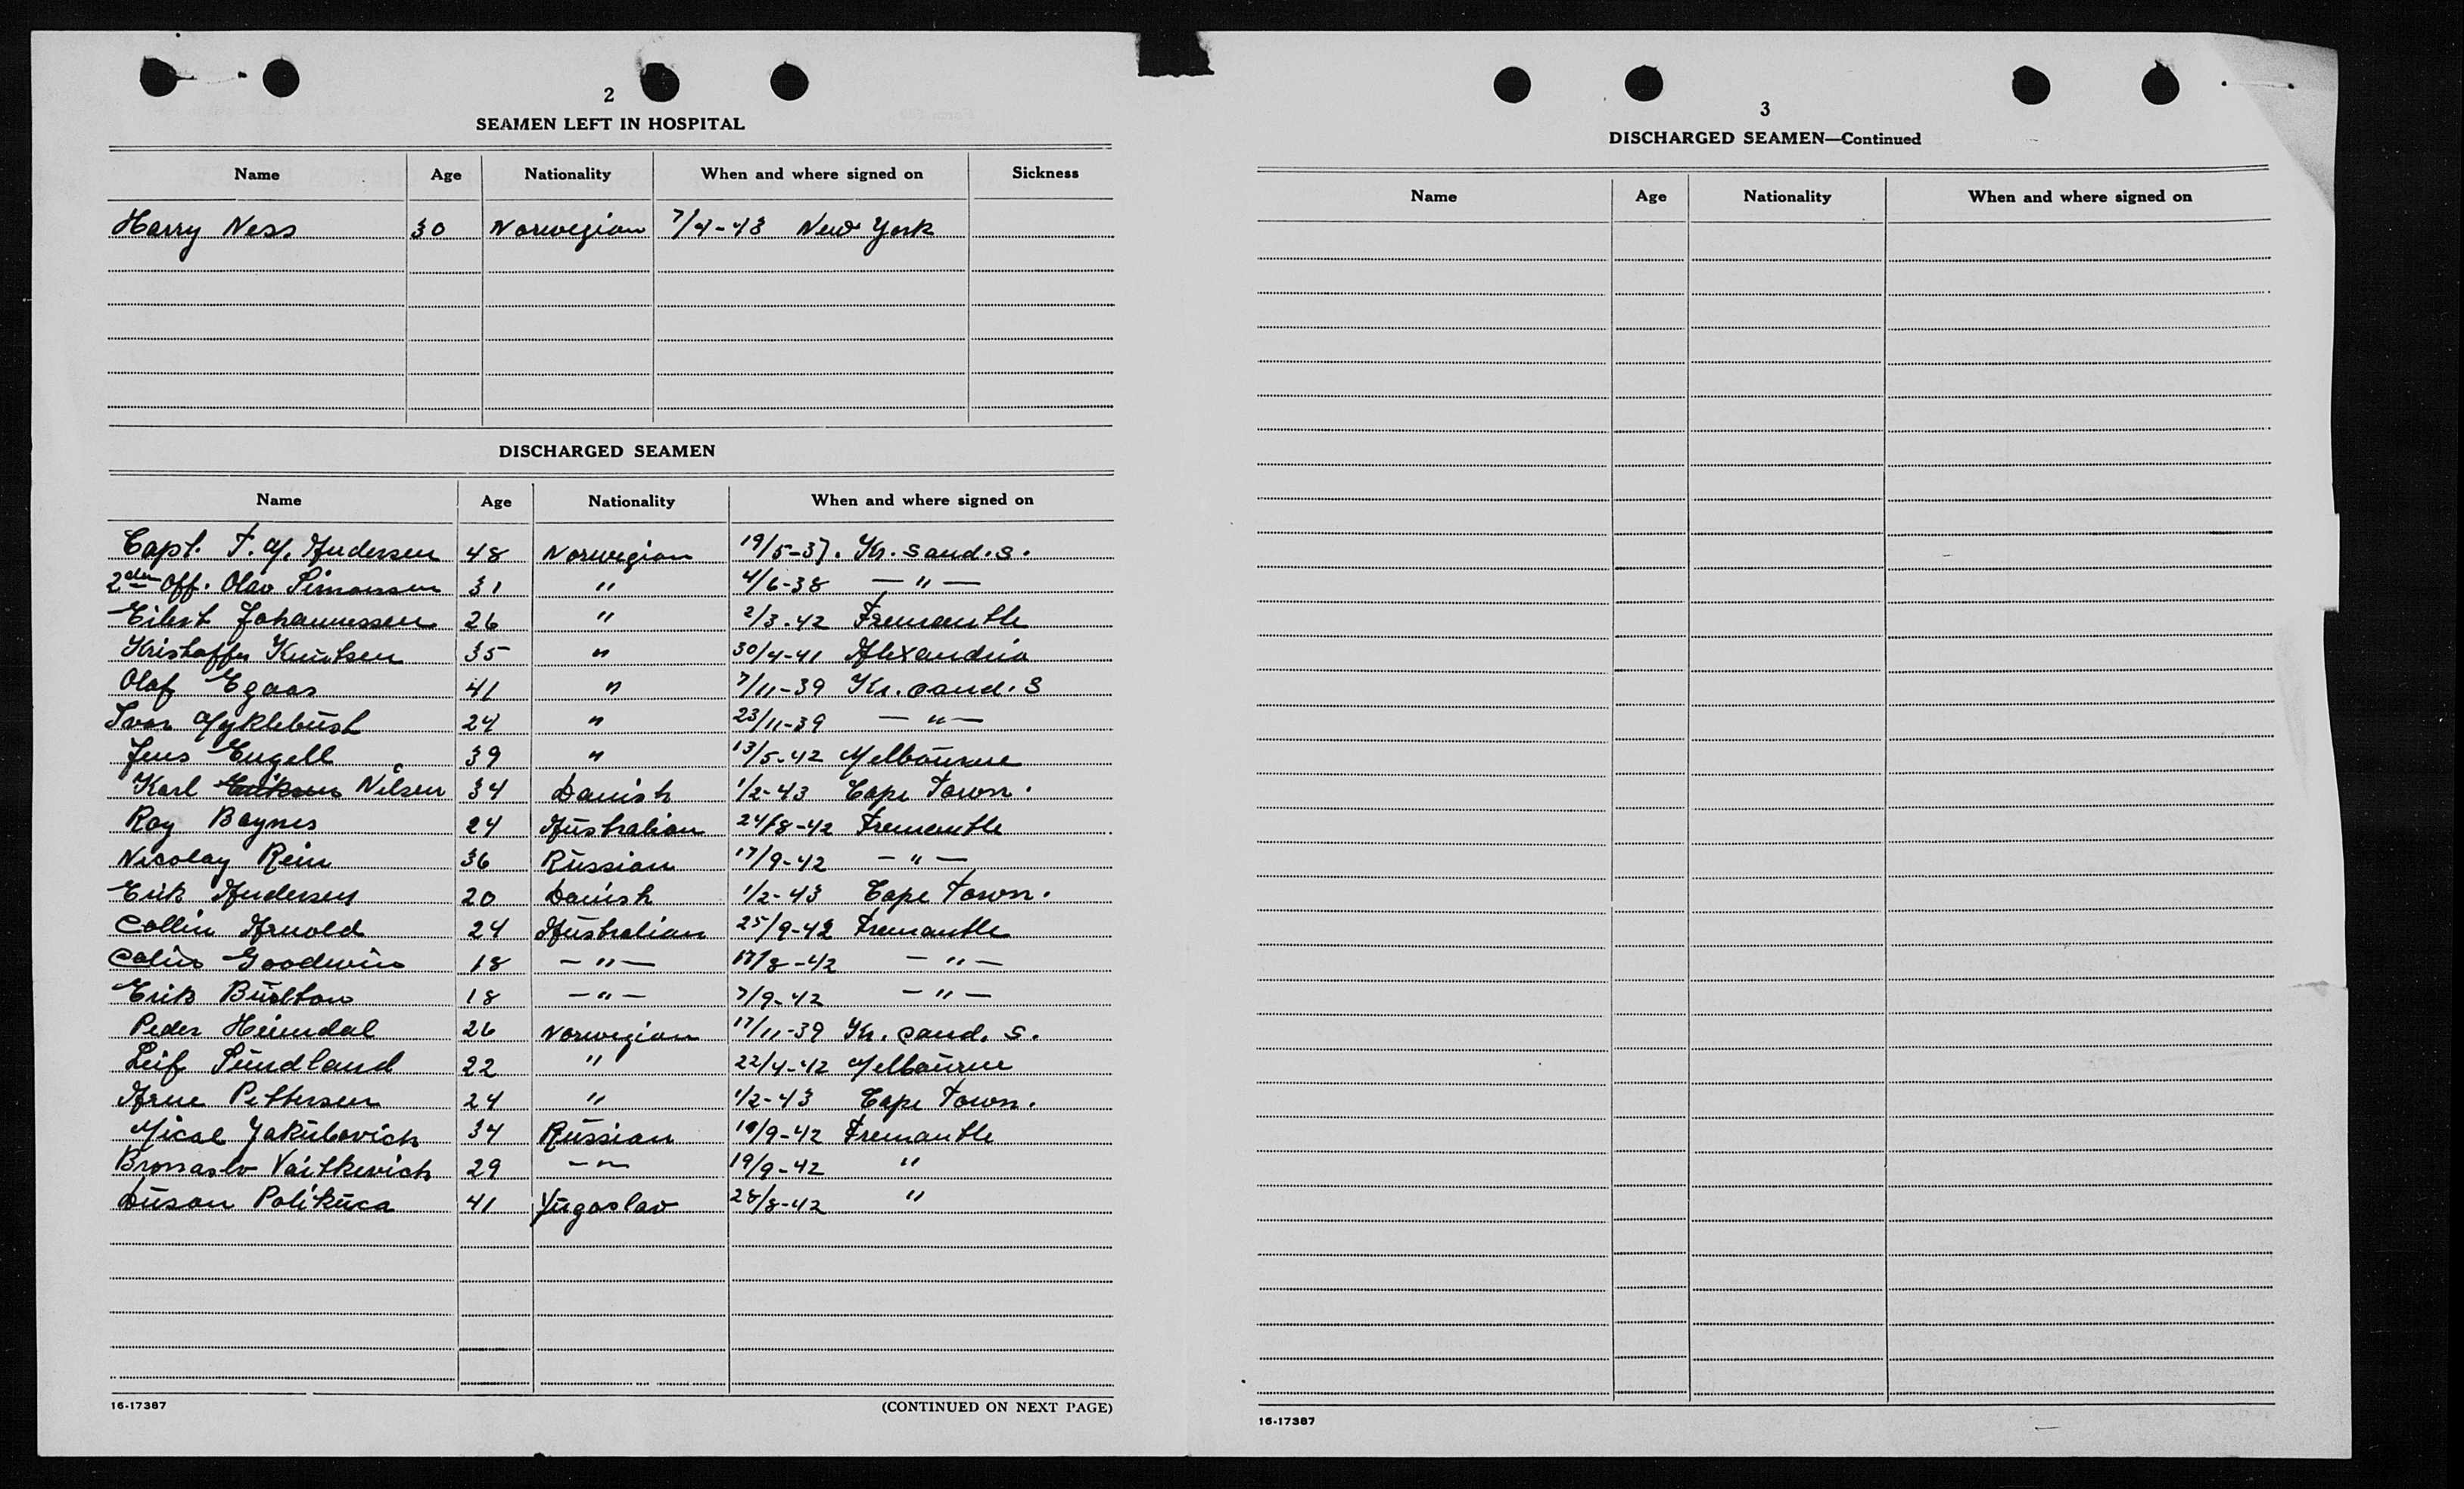 2
SEAMEN LEFT IN HOSPITAL
Name Age Nationality When and where signed on Sickness
Harry Ness 30 Norwegian 7/4-43 New York
DISCHARGED SEAMEN
Name Age Nationality When and where signed on
Capt. T. M. Andersen 48 Norwegian 19/5-37. Kr. sand. s.
2den Off. Olav Simonsen 31 " 4/6-38 — " —
Eilert Johannessen 26 " 2/3-42 Fremantle
Kristoffer Knutsen 35 " 30/4-41 Alexandria
Olaf Egaas 41 " 7/11-39 Kr. sand. S
Ivar Myklebust 24 " 23/11-39 — " —
Jens Engell 39 " 13/5-42 Melbourne
Karl Eriksen Nilsen 34 Danish 1/2-43 Cape Town.
Roy Baynes 24 Australian 24/8-42 Fremantle
Nicolay Rein 36 Russian 17/9-42 — " —
Erik Andersen 20 Danish 1/2-43 Cape Town.
Collin Arnold 24 Australian 25/9-42 Fremantle
Colin Goodwin 18 — " — 17/8-42 — " —
Erik 18 — " — 7/9-42 — " —
Peder Heimdal 26 Norwegian 17/11-39 Kr. sand. S.
Leif Sundland 22 " 22/4-42 Melbourne
Arne Pettersen 24 " 1/2-43 Cape Town.
Micael Jakubovich 34 Russian 19/9-42 Fremantle
Bronaslv Vaitkevich 29 — " — 19/9-42 "
Dusan Polikuca 41 Yugoslav 28/8-42 "
16-17387 (CONTINUED ON NEXT PAGE)
3
DISCHARGED SEAMEN—Continued
Name Age Nationality When and where signed on
16-17387